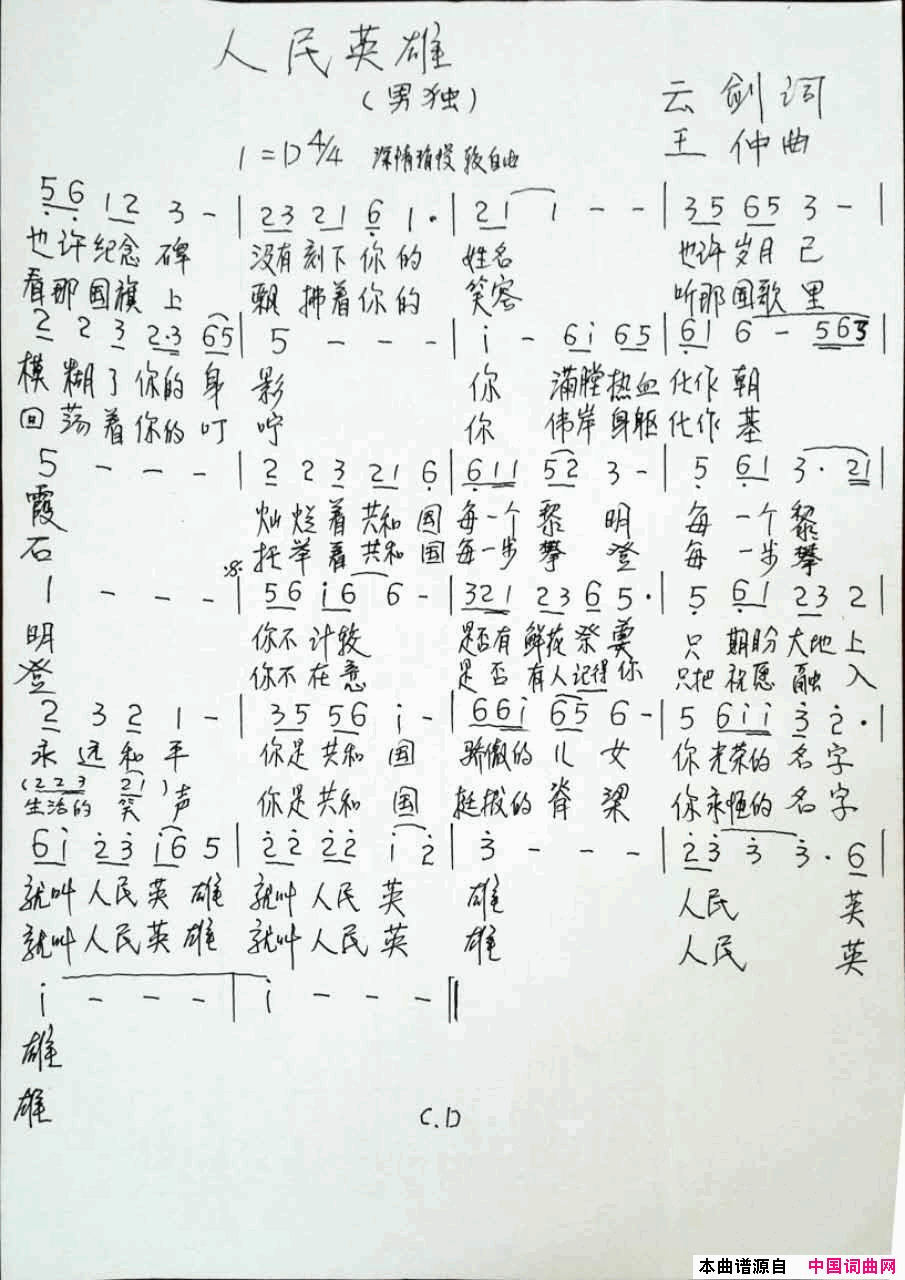 人民英雄
(男独)
云剑词
王仲曲
1=D 4/4 深情 较自由
5 6 1 2 3 - | 2 3 2 1 6 1 · | 2 1 1 - - | 3 5 6 5 3 - |
也许纪念碑 没有刻下你的 姓名 也许岁月已
看那国旗上 飘拂着你的 笑容 听那国歌里
2 2 3 2·3 6 5 | 5 - - - | i - 6 i 6 5 | 6 1 6 - 5 6 3
模糊了你的身 影 你 满膛热血化作朝
回荡着你的叮 咛 你 伟岸身躯化作基
5 - - - | 2 2 3 2 1 6 | 6 1 1 5 2 3 - | 5 6 1 3 · 2 1 |
霞 灿烂着共和国每一个黎明 每一个黎
石 托举着共和国每一步攀登 每一步攀
1 - - - | 5 6 i 6 6 - | 3 2 1 2 3 6 5 · | 5 6 1 2 3 2 |
明 你不计较 是否有鲜花祭奠 只期盼大地上
登 你不在意 是否有人记得你 只把祝愿融入
2 3 2 1 - | 3 5 5 6 i - | 6 6 i 6 5 6 - | 5 6 i i 3 2 · |
永远和平 你是共和国 骄傲的儿女 你光荣的名字
(2 2 3 2 1)
生活的笑声 你是共和国 挺拔的脊梁 你永恒的名字
6 i 2 3 i 6 5 | 2 2 2 2 i 2 | 3 - - - | 2 3 3 3 · 6 |
就叫人民英雄 就叫人民英 雄 人民 英
就叫人民英雄 就叫人民英 雄 人民 英
i - - - | i - - - ||
雄
雄
C.D
本曲谱源自 中国词曲网